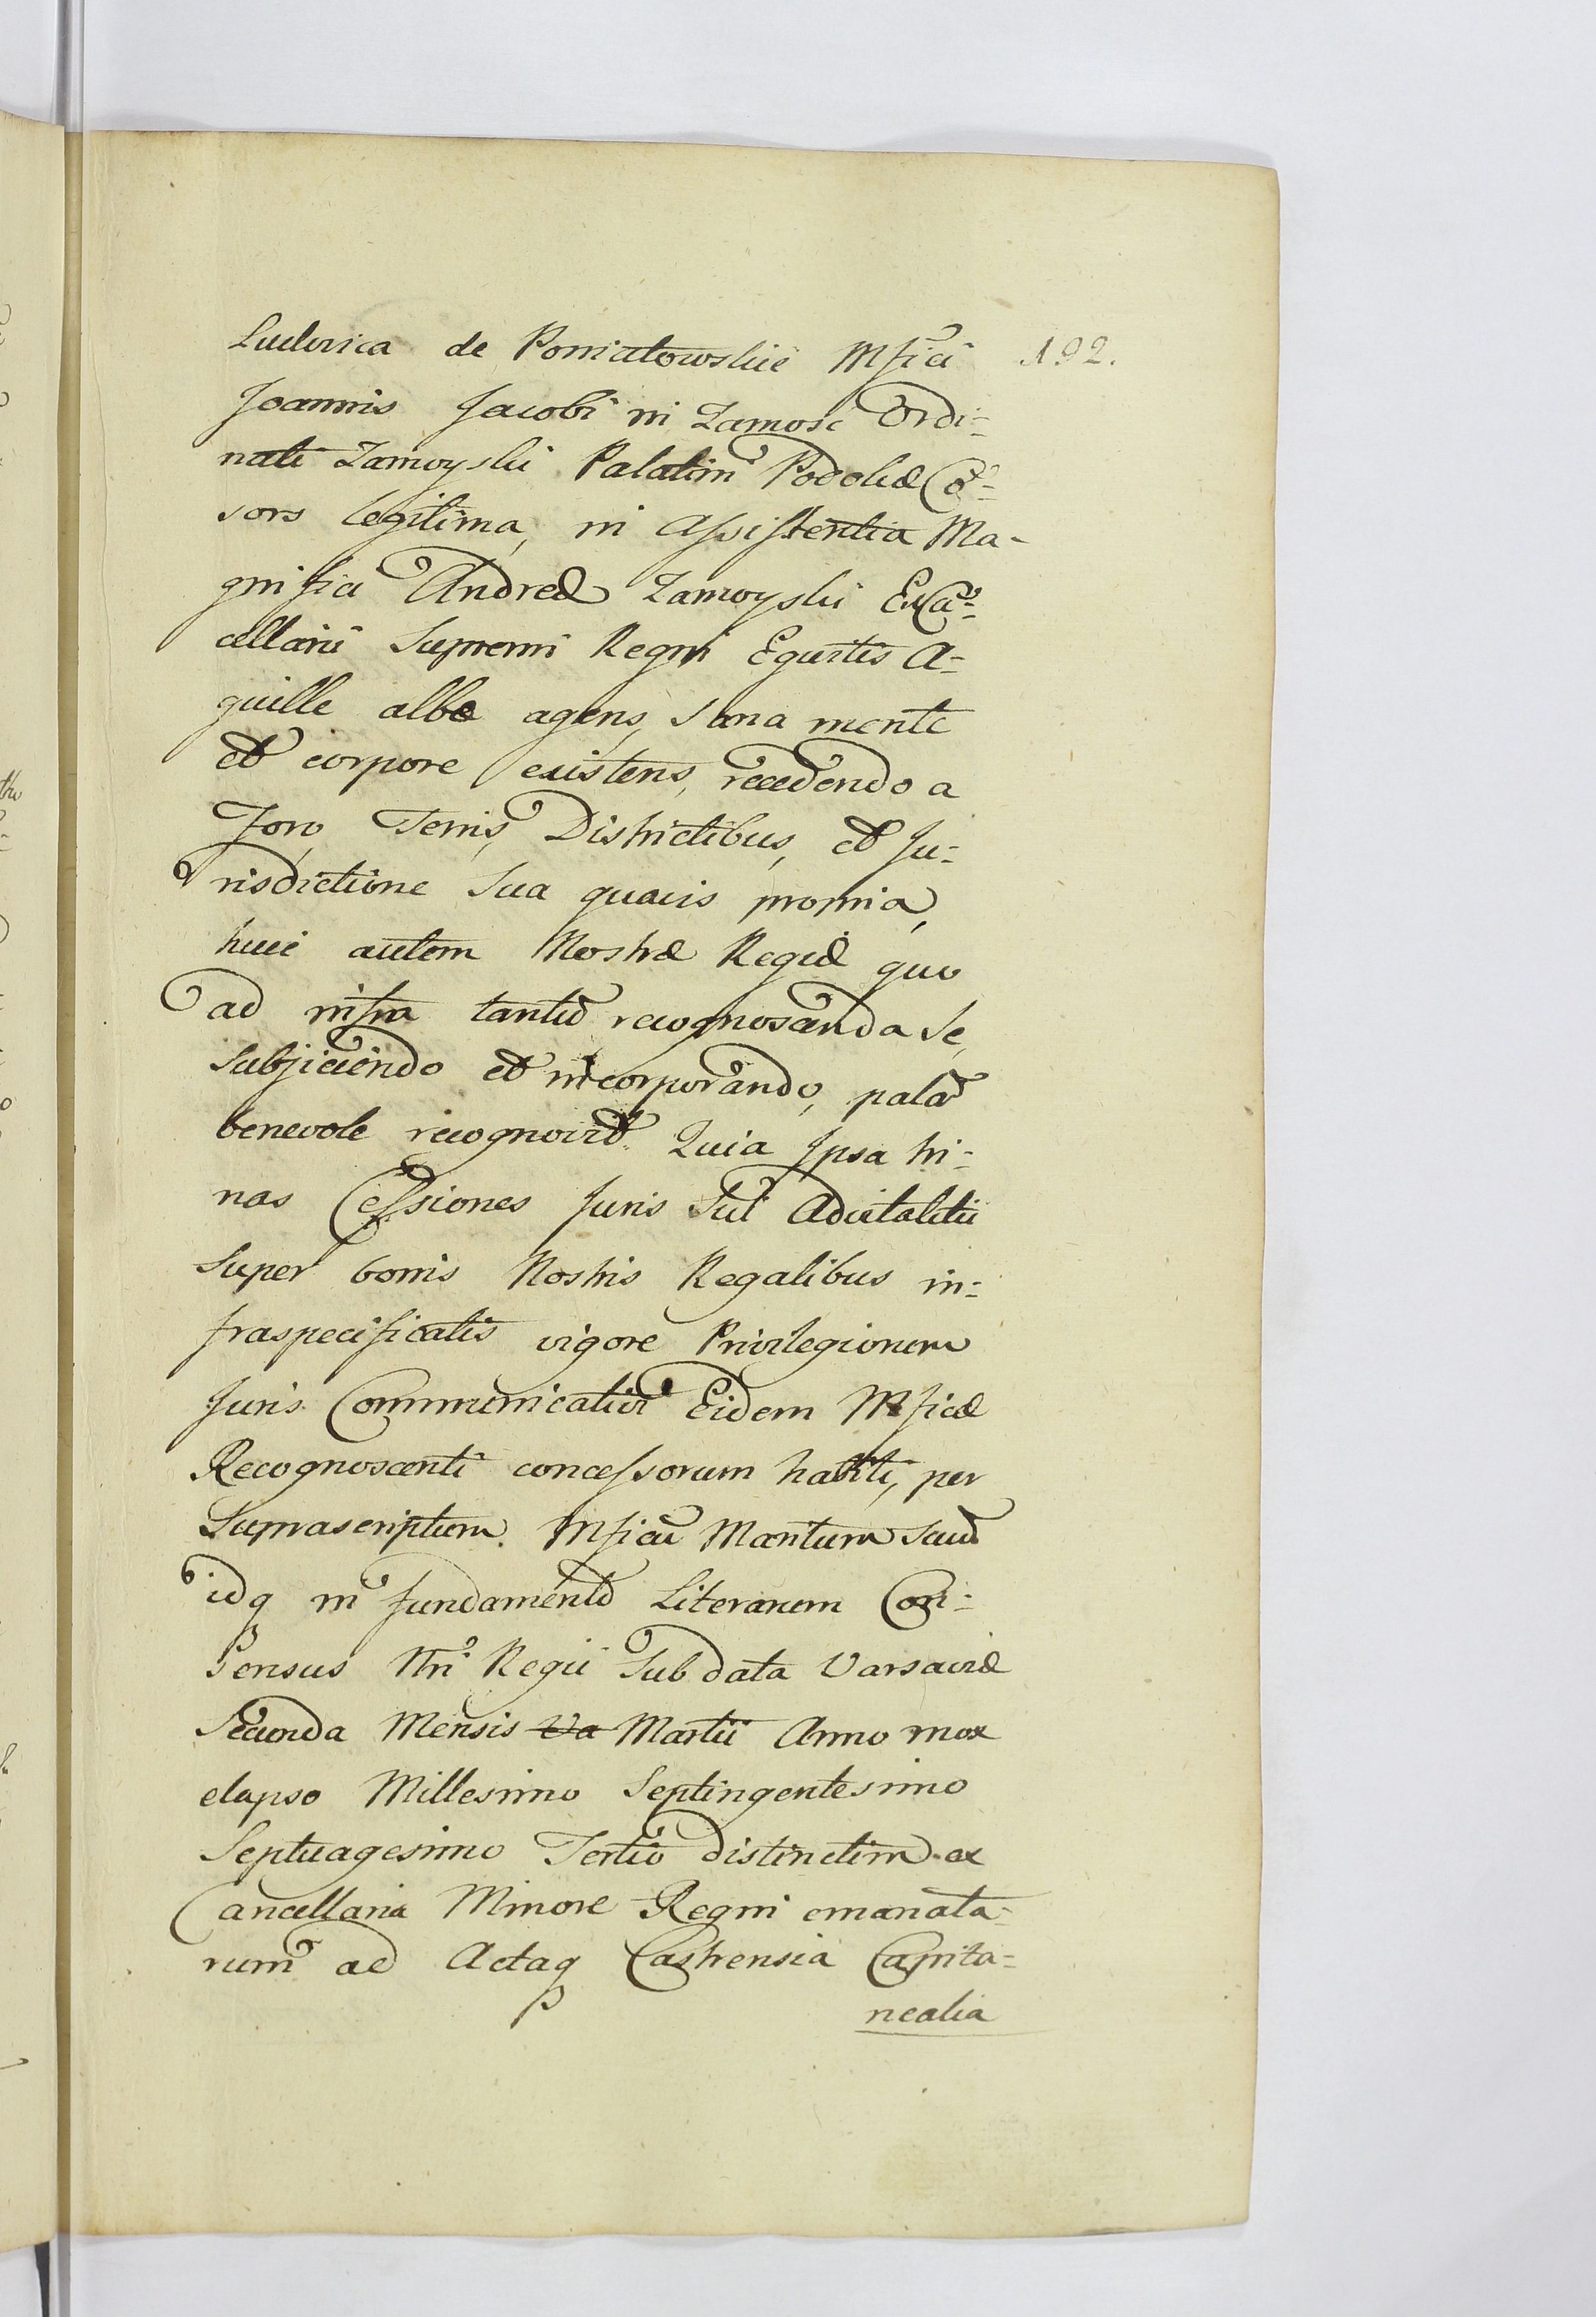 Ludovica de Poniatowskie Mfici 192.
Joannis Jacobi in Zamosc Ordi-
nati Zamoyski Palatini Podoliæ Co͂-
sors legitima, in Assistentia Ma-
gnifici Andreæ Zamoyski ExCa͂-
cellarii Supremi Regni Equitis A-
quille albæ agens, sana mente
et corpore existens, recedendo a
Foro, Terris, Districtibus, et Ju-
risdictione Sua quavis propria,
huic autem Nostræ Regiæ quo
ad infra tantu͂ recognoscenda se
subjiciendo et incorporando, pala͂
benevole recognovit. Quia Ipsa tri-
nas Cessiones Juris Sui Advitalitii
Super bonis Nostris Regalibus in-
fraspecificatis vigore Privilegiorum
Juris Communicativi Eidem Mficæ
Recognoscenti concessorum habiti, per
Suprascriptum Mficu͂ Maritum suu͂
idq in fundamento Literarum Con-
sensus Nri Regii Sub data Varsaviæ
Secunda Mensis Va Martii Anno mox
elapso Millesimo Septingentesimo
Septuagesimo Tertio distinctim ex
Cancellaria Minore Regni emanata-
rum ad Actaq Castrensia Capita-
nealia